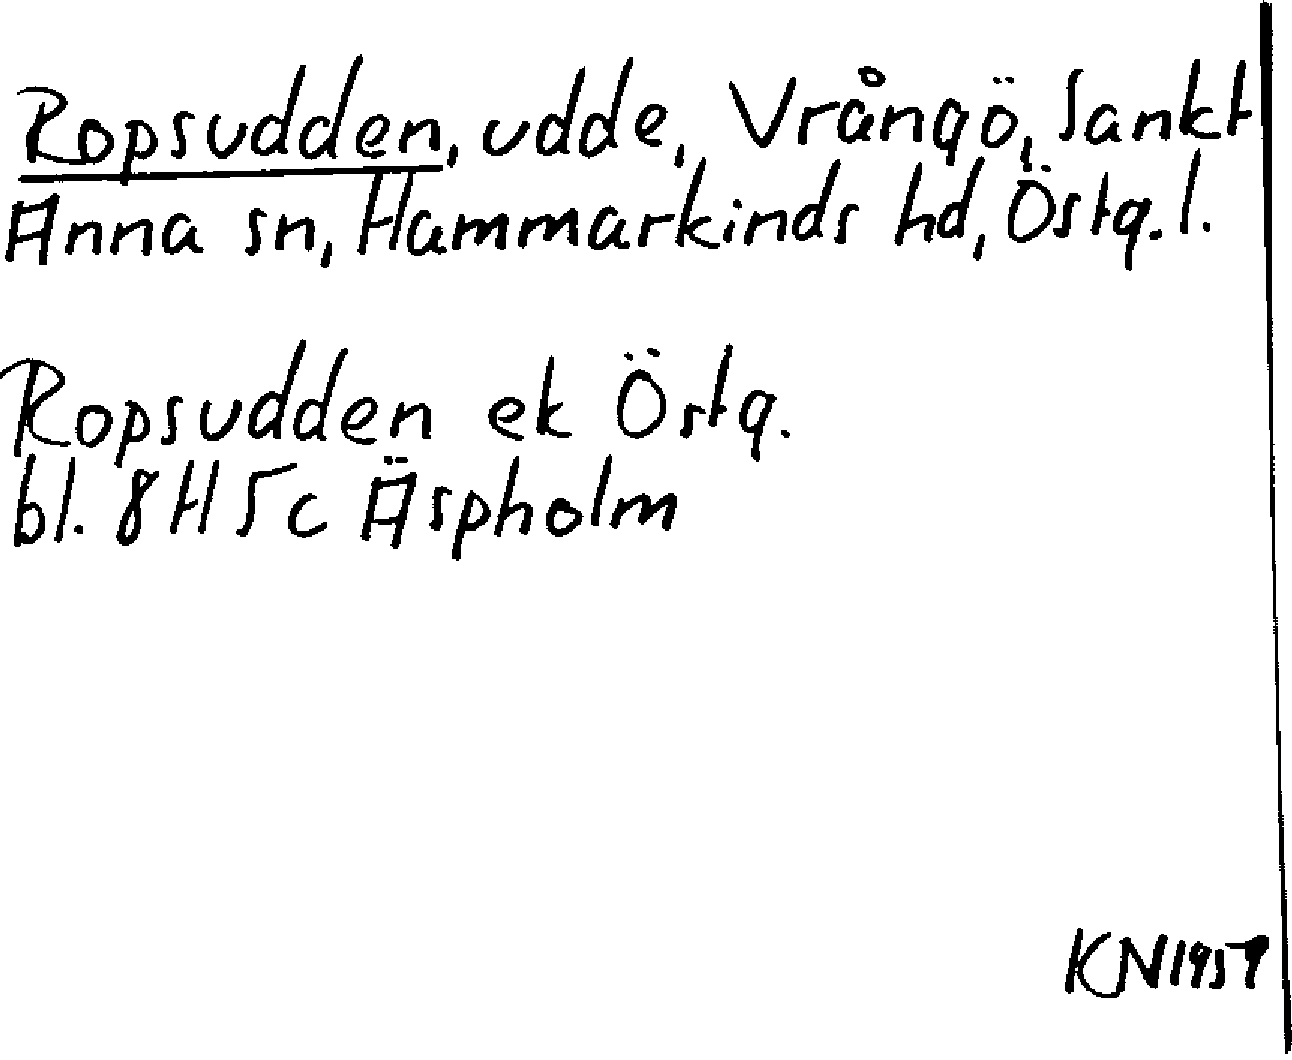 Ropsudden, udde, Vrångö, Sankt
Anna sn, Hammarkinds hd, Östg. l.
Ropsudden ek Östg.
bl. 8H 5c Äspholm
KN 1959